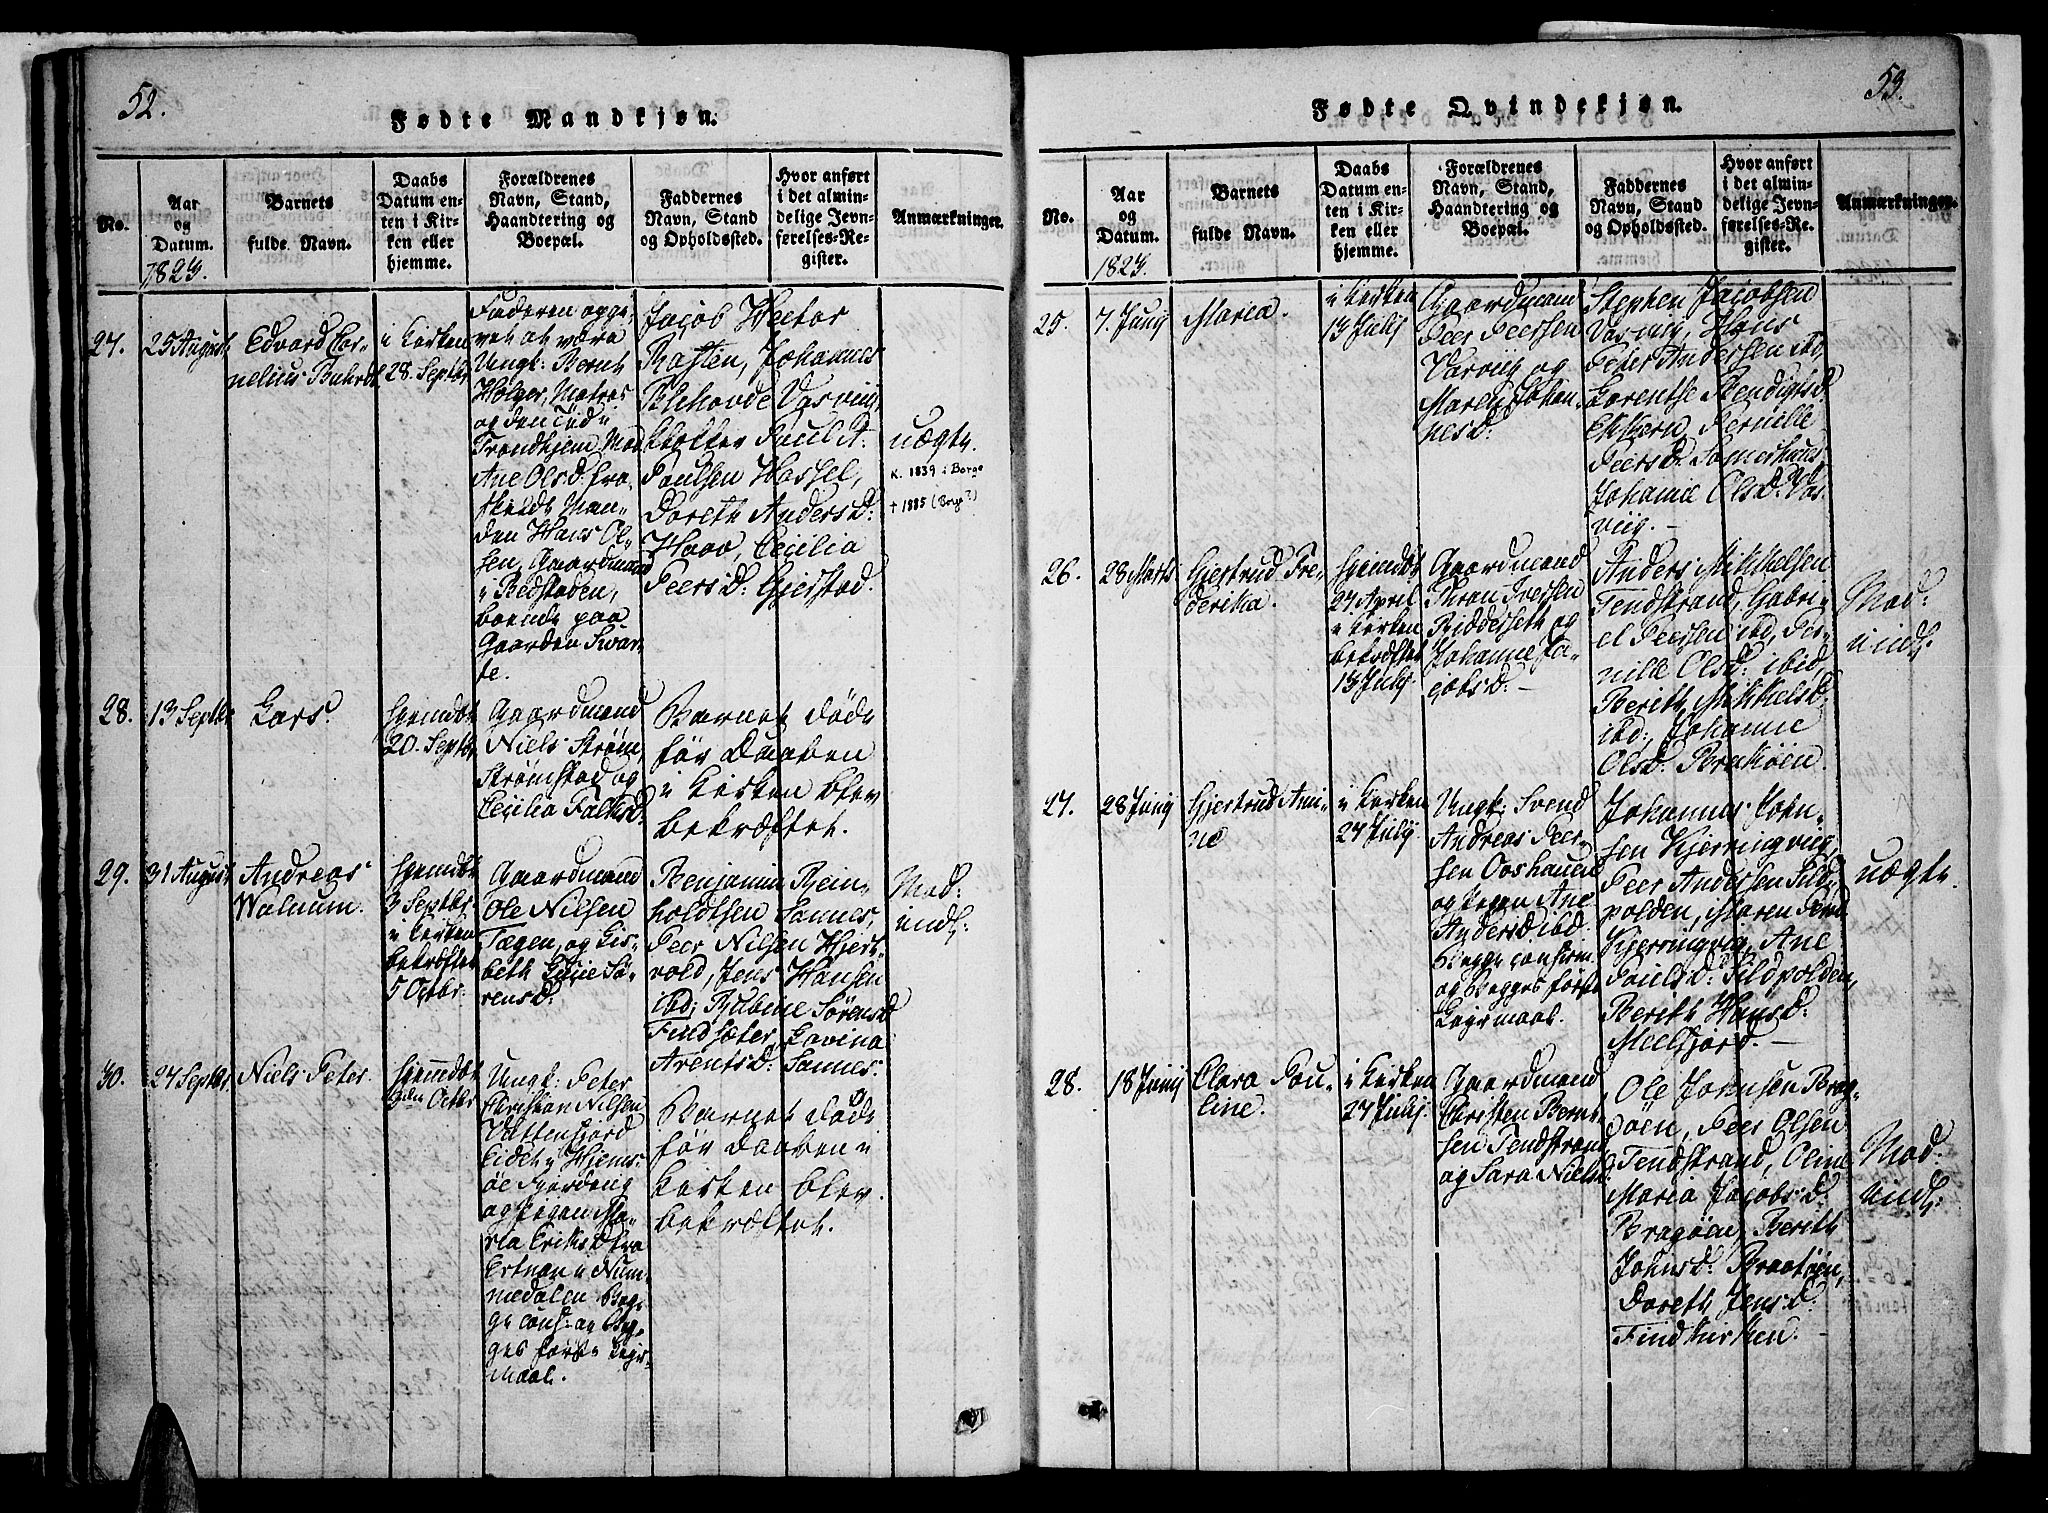 52.
Fødte Mandkjøn.
No.
Aar
og
Datum.
1823.
Barnets
fulde Navn.
Daabs
Datum en-
ten i Kir-
ken eller
hjemme.
Forældrenes
Navn, Stand,
Haandtering og
Boepæl.
Faddernes
Navn, Stand
og Opholdssted.
Hvor anført
i det almin-
delige Jevn-
førelses-Re-
gister.
Anmærkninger.
27.
25 August
Edvard Cor-
nelius Buhrdt
i Kirken
28. Septbr
Faderen opgi-
vet at være
Ungk: Bernt
Holger, Matros
og den Tid i
Trondhjem Mod
Ane Olsd: fra-
skildt Man-
den Hans Ol-
sen, Gaardmand
i Bedstaden,
boende paa
Gaarden Svar-
te.
Jacob Hector
Rasten, Johannes
Vasviig,
Poul A:
Poulsen Hassel,
Doreth Andersd:
Haav, Cecilia
Peersd: Gierstad.
uægte.
K. 1839 i Borge
† 1885 (Borge?)
28.
13 Septbr
Lars.
hjemdøbt
20. Septbr
Gaardmand
Niels Strøm,
Strømstad og
Cecilia Falksd:
Barnet døde
før Daaben
i Kirken blev
bekræftet.
29.
31 August
Andreas
Walnum.
hjemdøbt
3 Septbr
i Kirken
bekræftet
5 Octbr:
Gaardmand
Ole Nilsen
Tægen, og Lis-
beth Sø-
rensd:
Benjamin Rein-
holdtsen Sannes,
Peer Nilsen Hjert-
vold, Jens Hansen
ibd; Rubine Sørensd
Findsæter, Lovina
Arentsd: Sannes.
Mod:
indl:
30.
27 Septbr
Niels Peter.
hjemdøbt
3den Octbr
Ungk: Peter
Christian Nilsen
Vattenfjord
Eidet i Hjelms-
øe Fjerding
og Pigen Ma-
ria Eriksd fra
i Num-
medalen Beg-
ge conf: og Beg-
ges første Leyr-
maal.
Barnet døde
før Daaben i
Kirken blev
bekræftet.
53.
Fødte Qvindekjøn.
No.
Aar
og
Datum.
1823.
Barnets
fulde Navn.
Daabs
Datum en-
ten i Kir-
ken eller
hjemme.
Forældrenes
Navn, Stand,
Haandtering og
Boepæl.
Faddernes
Navn, Stand
og Opholdssted.
Hvor anført
i det almin-
delige Jevn-
førelses-Re-
gister.
Anmærkninger.
25.
7. Junij
Maria.
i Kirken
13 Julij
Gaardmand
Peer Peersen
Varviig og
Maren Johan-
nesd:
Stephen Jacobsen
Vasviig, Hans
Peter Andersen ibd,
Lorentse Bendigtsd:
Pernille
Peersd: Somerhuus,
Johanne Olsd: Vas-
viig.
26.
28 Marts
Gjertrud Fre-
derika.
hjemdøbt
27 April
i Kirken
bekræftet
13 Julij.
Gaardmand
Thron Iversen
Riddersett og
Johanne Ja-
cobsd:
Anders Mikkelsen
Tendstrand, Gabri-
el Peersen ibd, Per-
nille Olsd: ibid,
Berith Mikkelsd:
ibd:, Johanne
Olsd:
Mod:
indl:
27.
28 Junij
Gjertrud Ami-
ne
i Kirken
27 Julij.
Ungk: Svend
Andreas Peer-
sen
og Pigen Ane
Andersd ibd.
begge confirm
og begges første
Leyrmaal.
Johannes John-
sen Kjerringviig,
Peer Andersen Sild-
polden, Maren
Kjerringvig, Ane
Poulsd: Sildpolden,
Berith Hansd:
Meelfjord.
uægte.
28.
18 Junij
Clara Pou-
line.
i Kirken
27 Julij.
Gaardmand
Christen Bernt-
sen Tendstrand
og Sara Nielsd:
Ole Johnsen Brag-
øen, Peer Olsen
Tendstrand, Oline
Maria Jacobsd:
Bragøen, Berith
Johnsd: Braatøen,
Doreth Jensd:
Mod:
indl: